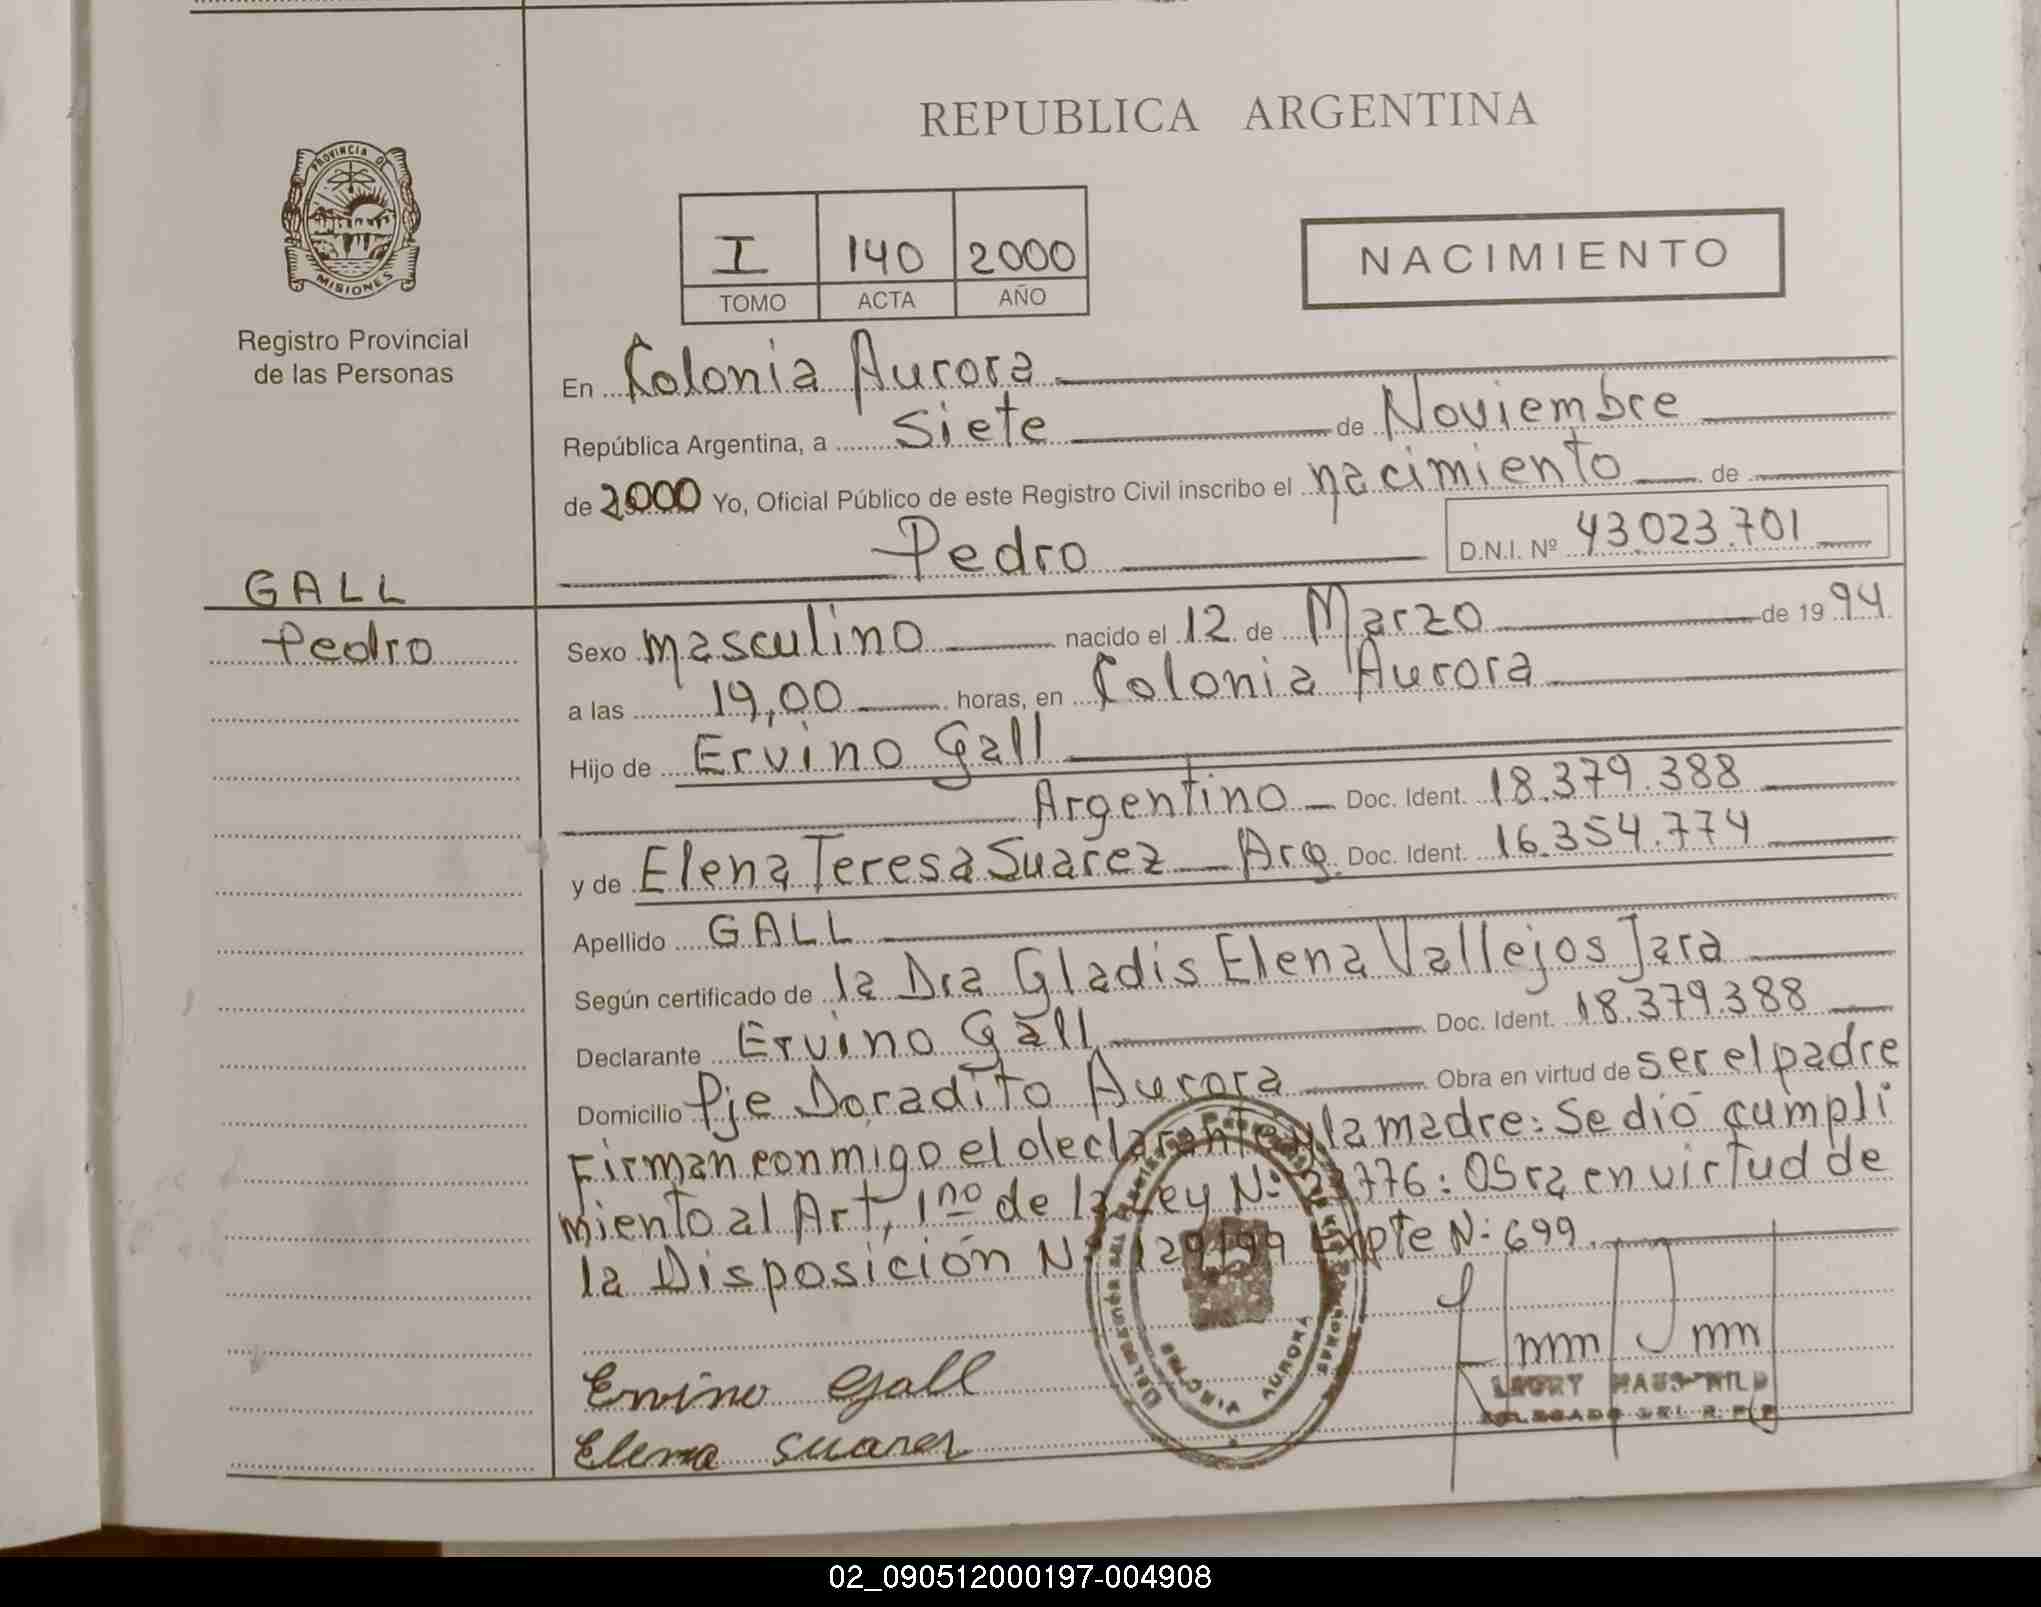 REPUBLICA ARGENTINA
PROVINCIA DE
MISIONES
Registro Provincial
de las Personas
I 140 2000
TOMO ACTA AÑO
NACIMIENTO
En Colonia Aurora
República Argentina, a siete de Noviembre
de 2000 Yo, Oficial Público de este Registro Civil inscribo el nacimiento de
Pedro D.N.I. Nº 43.023.701
GALL
Pedro
Sexo masculino nacido el 12 de Marzo de 1994
a las 19,00 horas, en Colonia Aurora
Hijo de Ervino Gall
Argentino Doc. Ident. 18.379.388
y de Elena Teresa Suarez Arg. Doc. Ident. 16.354.774
Apellido GALL
Según certificado de la Dra Gladis Elena Vallejos Jara
Declarante Ervino Gall Doc. Ident. 18.379.388
Domicilio Pje Doradito Aurora Obra en virtud de ser el padre
Firman conmigo el declarante y la madre: Se dió cumpli
miento al Art, 1no de la Ley Nº 776: Obra en virtud de
la Disposición Nº 129/99 Expte Nº 699.
Ervino Gall
Elena Suarez
AURORA
DELEGADO DEL R. P. P.
02_090512000197-004908